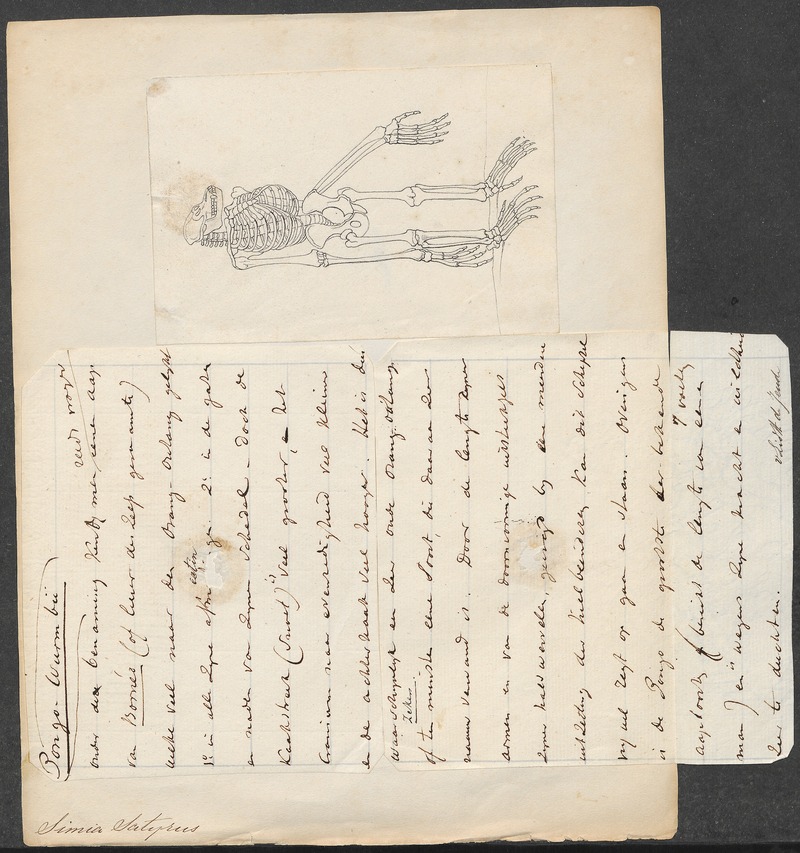 Pongo-Wurmbii
reeds vroeger
onder deze benaming kendt men eene aap
van Borneo (of liever derzelfs geraamte)
welke veel naar den Orang-Oetang gelijkt
1° in alle zyne 2° in de gaten
en naden van zynen Schedel - doch de
Kaakstreek (Snoet) is veel grooter, en het
Cranium naar evenredigheid veel kleiner
en de achterkaak veel hooger. Het is dus
waarschynlyk en den oude Orang-oetang
zeker
of ten minste eene soort, die daar aan zeer
naauw verwand is. Door de lengte zyner
armen en van de doornvormige uitsteeksels
zyner halswervelen, gevoegd by een meerdere
uitbreiding des hielbeenderen, kan dit schepsel
vry wel regt op gaan en staan. Overigens
is de Pongo de grootste der bekende
aapsoorten (bereikt de lengte van eenen 7 voeten
man) en is wegens zyne kracht en wildheid
zeer te duchten.
Simia Satyrus